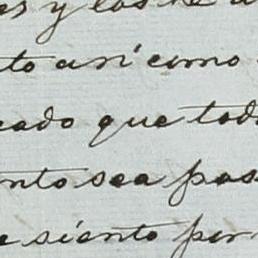 es y los
to así como
cado que tod
nto sea pas
e siento per